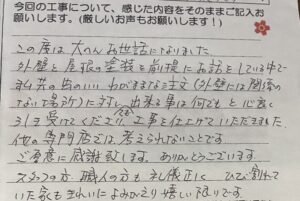 今回の工事について、感じた内容をそのままご記入お
願いします。(厳しいお声もお願いします！)
この度は大のんお世話になりました
外壁と屋根の塗装を前提にお話をしている中で
私共の
わがままな注文(外壁には関係の
ない場所)に対し、出来る事は何でもと心良く
引き受けてくださり、工事を仕上げていただきました。
他の専門店では考えられないことです
ご厚意に感謝致します。ありがとうございます
スタッフの方、職人の方も礼儀正しく ひび割れて
いた家もきれいによみがえり嬉しい限りです